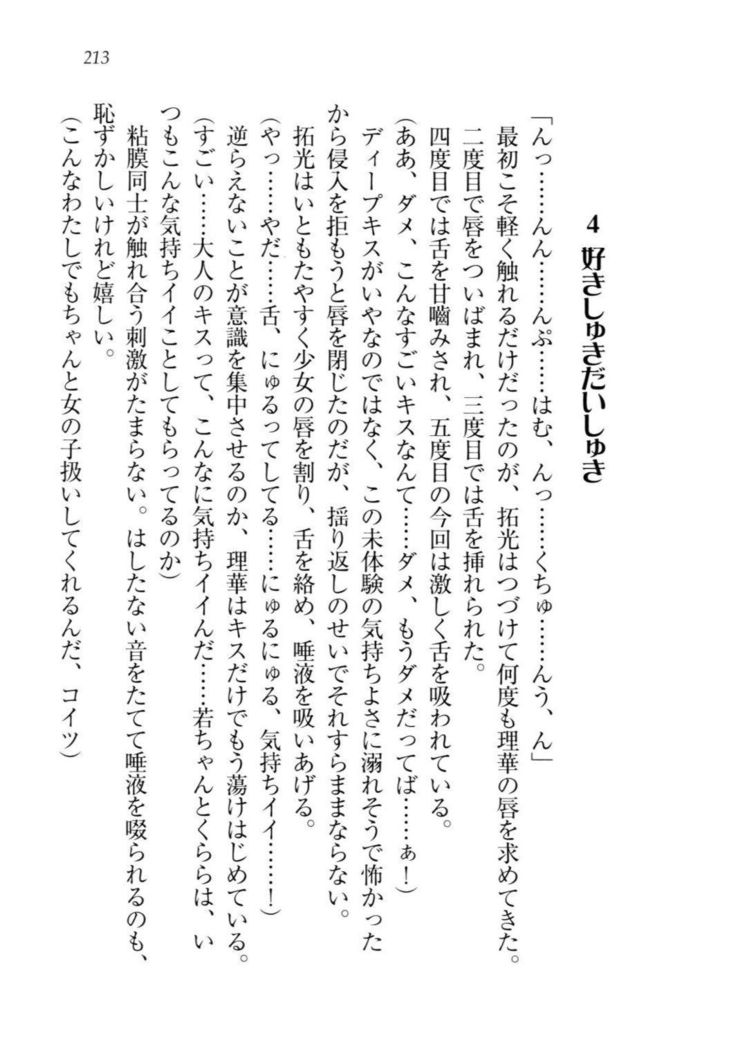 213
4 好きしゅきだいしゅき
「んっ……んん……んぷ……はむ、んっ……くちゅ……んう、ん」
最初こそ軽く触れるだけだったのが、拓光はつづけて何度も理華の唇を求めてきた。
二度目で唇をついばまれ、三度目では舌を挿れられた。
四度目では舌を甘嚙みされ、五度目の今回は激しく舌を吸われている。
(ああ、ダメ、こんなすごいキスなんて……ダメ、もうダメだってば……ぁ！)
ディープキスがいやなのではなく、この未体験の気持ちよさに溺れそうで怖かった
から侵入を拒もうと唇を閉じたのだが、揺り返しのせいでそれすらままならない。
拓光はいともたやすく少女の唇を割り、舌を絡め、唾液を吸いあげる。
(やっ……やだ……舌、にゅるってしてる……にゅるにゅる、気持ちイイ……！)
逆らえないことが意識を集中させるのか、理華はキスだけでもう蕩けはじめている。
(すごい……大人のキスって、こんなに気持ちイイんだ……若ちゃんとくららは、い
つもこんな気持ちイイことしてもらってるのか)
粘膜同士が触れ合う刺激がたまらない。はしたない音をたてて唾液を啜られるのも、
恥ずかしいけれど嬉しい。
(こんなわたしでもちゃんと女の子扱いしてくれるんだ、コイツ)